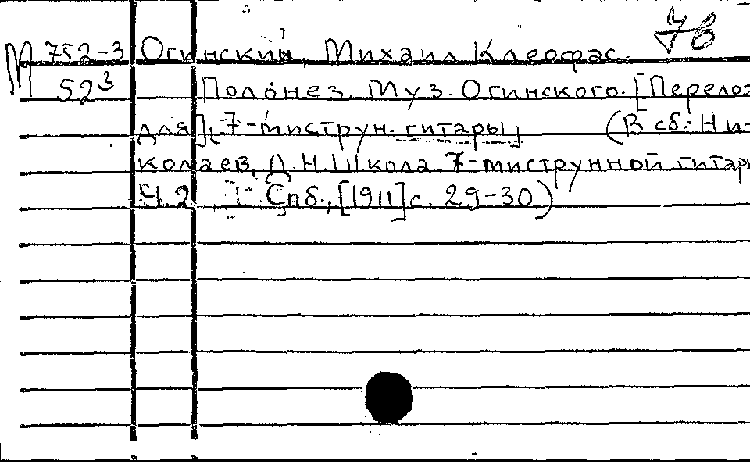 78
М 752-3 Огинский, Михаил Клеофас.
52³ Полонез. Муз. Огинского. [Перелож
для] 7-миструн. гитары (В сб: Ни-
колаев, Д.Н. Школа 7-миструнной гитары
Ч.2 Спб., [1911] с. 29-30)